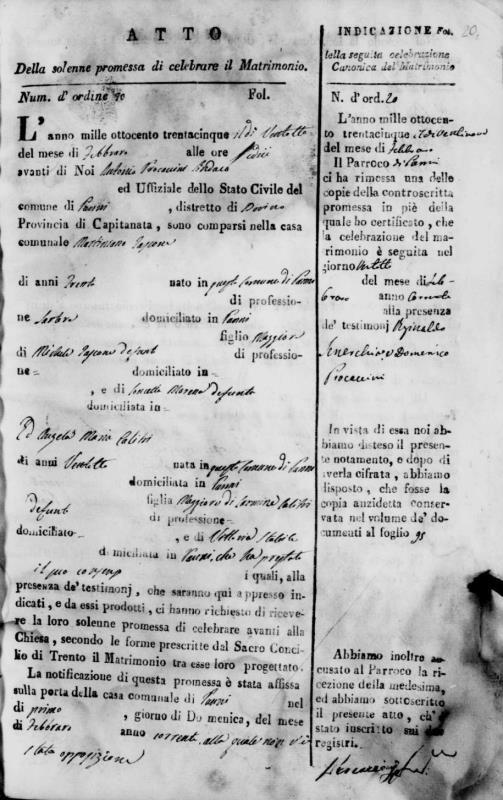 ATTO
Della solenne promessa di celebrare il Matrimonio.
Num. d' ordine 20 Fol.
L' anno mille ottocento trentacinque il dì Ventotto
del mese di Febbraro alle ore sedici
avanti di Noi Antonio Procaccini Sindaco
ed Uffiziale dello Stato Civile del
comune di Panni , distretto di Bovino
Provincia di Capitanata, sono comparsi nella casa
comunale
di anni Trenta nato in questo Comune di Panni
di professio-
ne domiciliato in Panni
figlio Maggiore
di Michele defunto di professio-
ne= domiciliato in=
, e di Donata Morena defunta
domiciliata in=
Ed Angela Maria Calitri
di anni Ventotto nata in questo Comune di Panni
domiciliata in Panni
figlia Maggiore di Carmine Calitri
defunto di professione=
domiciliato= , e di Vittoria
domiciliata in Panni, che ha prestato
il suo consenso i quali, alla
presenza de' testimonj, che saranno quì appresso in-
dicati, e da essi prodotti, ci hanno richiesto di riceve-
re la loro solenne promessa di celebrare avanti alla
Chiesa, secondo le forme prescritte dal Sacro Conci-
lio di Trento il Matrimonio tra esse loro progettato.
La notificazione di questa promessa è stata affissa
sulla porta della casa comunale di Panni nel
dì primo , giorno di Domenica, del mese
di Febbraro anno corrente, alla quale non vi è
stata opposizione
20.
INDICAZIONE Fol.
della seguita celebrazione
Canonica del Matrimonio
N. d' ord. 20
L'anno mille ottocen-
to trentacinque il dì
del mese di Febbraro
Il Parroco di Panni
ci ha rimessa una delle
copie della controscritta
promessa in piè della
quale ho certificato, che
la celebrazione del ma-
trimonio è seguita nel
giorno
del mese di Feb-
braro anno Corrente
alla presenza
de' testimonj
e Domenico
Procaccini
In vista di essa noi ab-
biamo disteso il presen-
te notamento, e dopo di
averla cifrata, abbiamo
disposto, che fosse la
copia anzidetta conser-
vata nel volume de' do-
cumenti al foglio 95
Abbiamo inoltre ac-
cusato al Parroco la ri-
cezione della medesima,
ed abbiamo sottoscritto
il presente atto, ch' è
stato inscritto sui due
registri.